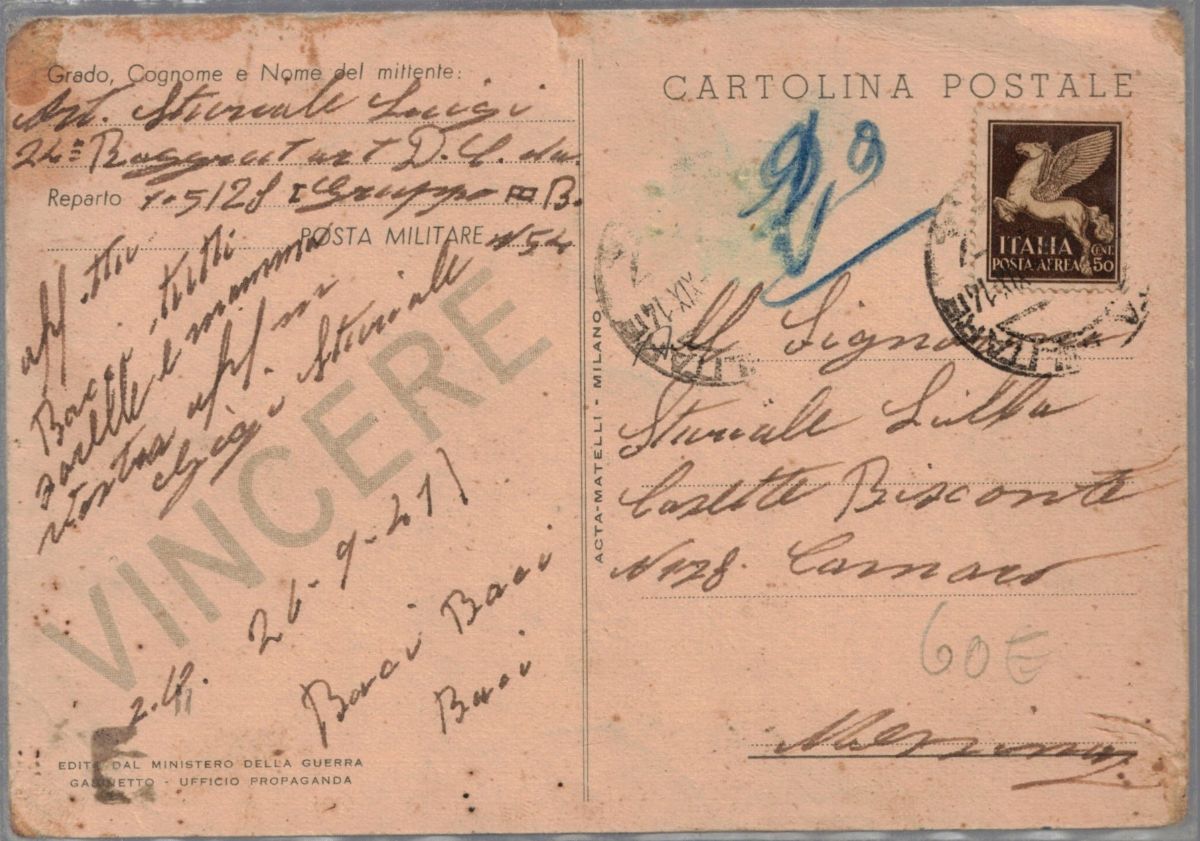 Grado, Cognome e Nome del mittente:
Art. Sturiale Luigi
24º Raggrut art D.
Reparto 1-5128 I Gruppo B.
POSTA MILITARE N 54
aff. tuo
Baci tutti
sorelle e mamma
vostro aff. m
Gigi Sturiale
26-9-41
Baci Baci
Baci
VINCERE
EDITA DAL MINISTERO DELLA GUERRA
GABINETTO - UFFICIO PROPAGANDA
ACTA-MATELLI - MILANO
CARTOLINA POSTALE
ITALIA
POSTA AEREA
CENT. 50
XIX-14
XIX-14
Sturiale Lilla
Casette Bisconte
N 128. Camaro
60E
Messina